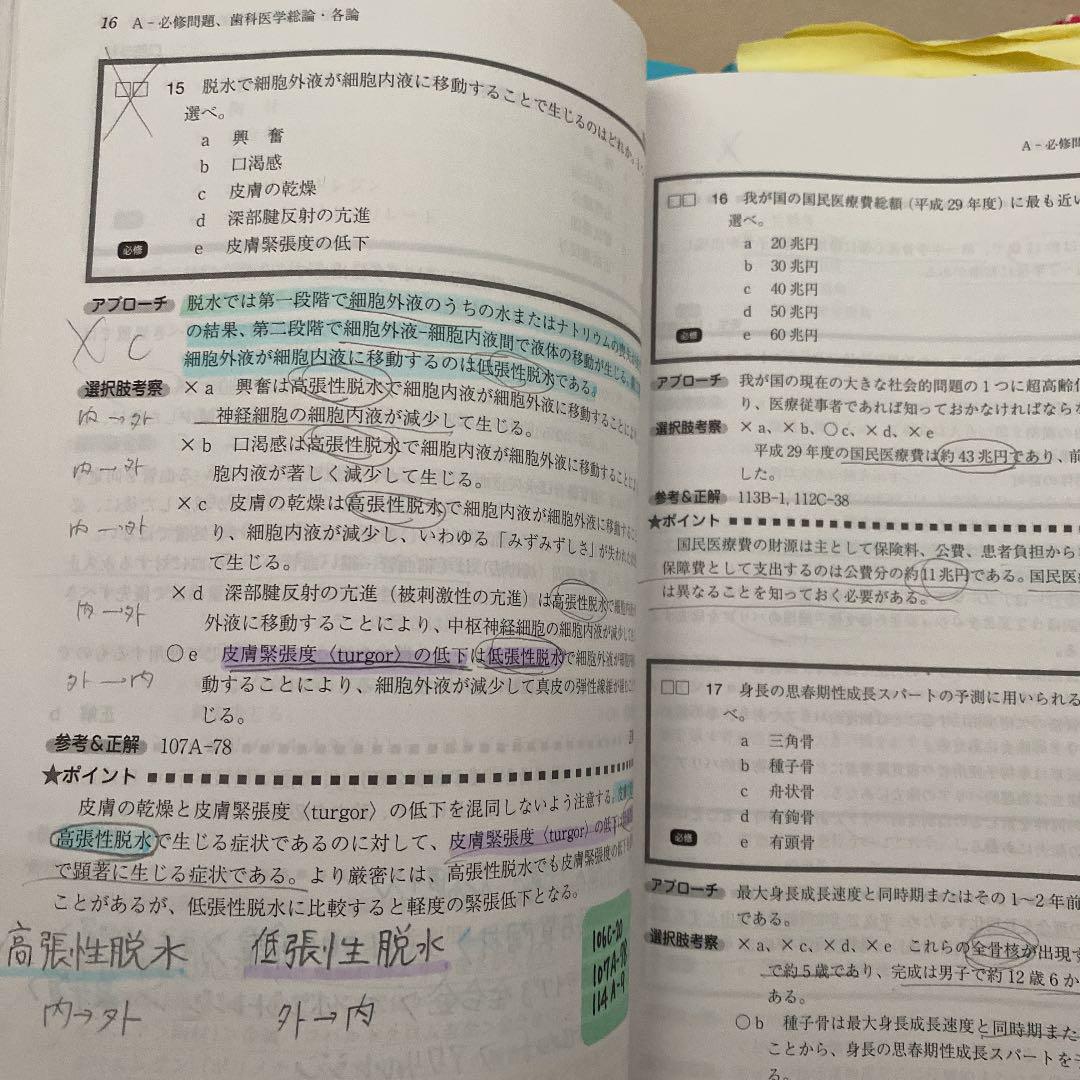 16 A－必修問題、歯科医学総論・各論
15 脱水で細胞外液が細胞内液に移動することで生じるのはどれか。1
選べ。
a 興 奮
b 口渇感
c 皮膚の乾燥
d 深部腱反射の亢進
必修 e 皮膚緊張度の低下
アプローチ 脱水では第一段階で細胞外液のうちの水またはナトリウムの
の結果、第二段階で細胞外液-細胞内液間で液体の移動が生じる。
細胞外液が細胞内液に移動するのは低張性脱水である。
× c
選択肢考察 ×a 興奮は高張性脱水で細胞内液が細胞外液に移動することにより
内→外 神経細胞の細胞内液が減少して生じる。
×b 口渇感は高張性脱水で細胞内液が細胞外液に移動することに
内→外 胞内液が著しく減少して生じる。
×c 皮膚の乾燥は高張性脱水で細胞内液が細胞外液に移動するこ
内→外 り、細胞内液が減少し、いわゆる「みずみずしさ」が失われた
て生じる。
×d 深部腱反射の亢進（被刺激性の亢進）は高張性脱水で細胞
内→外 外液に移動することにより、中枢神経細胞の細胞内液が減少して
○e 皮膚緊張度〈turgor〉の低下は低張性脱水で細胞外液が細胞
外→内 動することにより、細胞外液が減少して真皮の弾性線維が
じる。
参考＆正解 107A-78
★ポイント
皮膚の乾燥と皮膚緊張度〈turgor〉の低下を混同しないよう注意する。
高張性脱水で生じる症状であるのに対して、皮膚緊張度〈turgor〉の低下は
で顕著に生じる症状である。より厳密には、高張性脱水でも皮膚緊張度の低下
ことがあるが、低張性脱水に比較すると軽度の緊張低下となる。
高張性脱水 低張性脱水
内→外 外→内
106C-20
107A-78
114A-9
A－必修問
16 我が国の国民医療費総額（平成29年度）に最も近い
選べ。
a 20兆円
b 30兆円
c 40兆円
d 50兆円
必修 e 60兆円
アプローチ 我が国の現在の大きな社会的問題の1つに超高齢化
り、医療従事者であれば知っておかなければならな
選択肢考察 ×a、×b、○c、×d、×e
平成29年度の国民医療費は約43兆円であり、前
した。
参考＆正解 113B-1, 112C-38
★ポイント
国民医療費の財源は主として保険料、公費、患者負担から
保障費として支出するのは公費分の約11兆円である。国民医
は異なることを知っておく必要がある。
17 身長の思春期性成長スパートの予測に用いられる
べ。
a 三角骨
b 種子骨
c 舟状骨
d 有鉤骨
必修 e 有頭骨
アプローチ 最大身長成長速度と同時期またはその1～2年前
である。
選択肢考察 ×a、×c、×d、×e これらの全骨核が出現す
で約5歳であり、完成は男子で約12歳6か
ある。
○b 種子骨は最大身長成長速度と同時期また
ことから、身長の思春期性成長スパートを予
る。